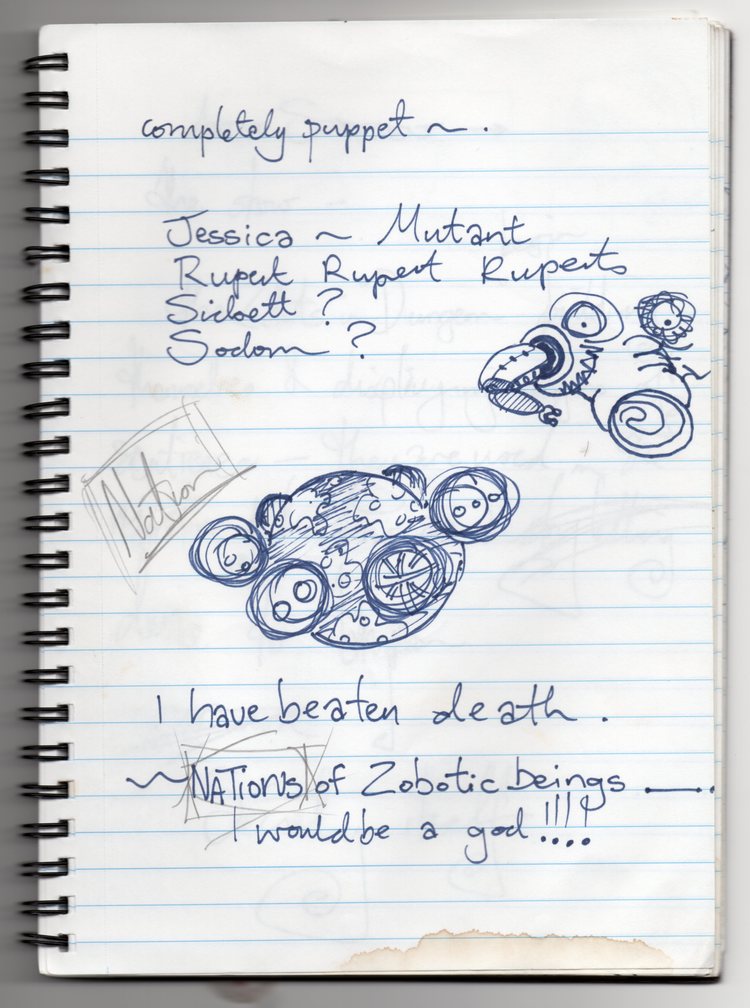 completely puppet ~ .
Jessica ~ Mutant
Rupert Rupert Ruperts
Sicbett ?
Sodom ?
Nation
I have beaten death .
~ NATIONS of Zobotic beings ——.
I would be a god !!!!